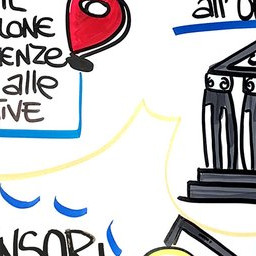 LONE
ENZE
alle
IVE
all'
NSORI